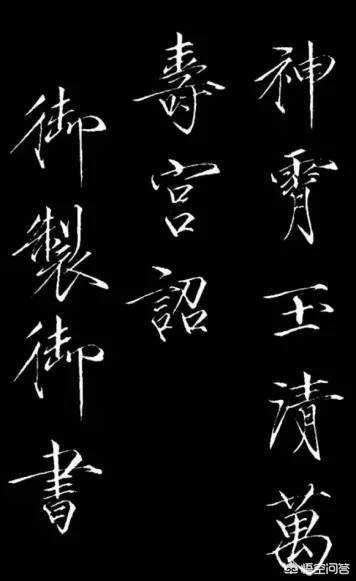 神霄玉清萬
壽宮詔
御製御書
悟空问答